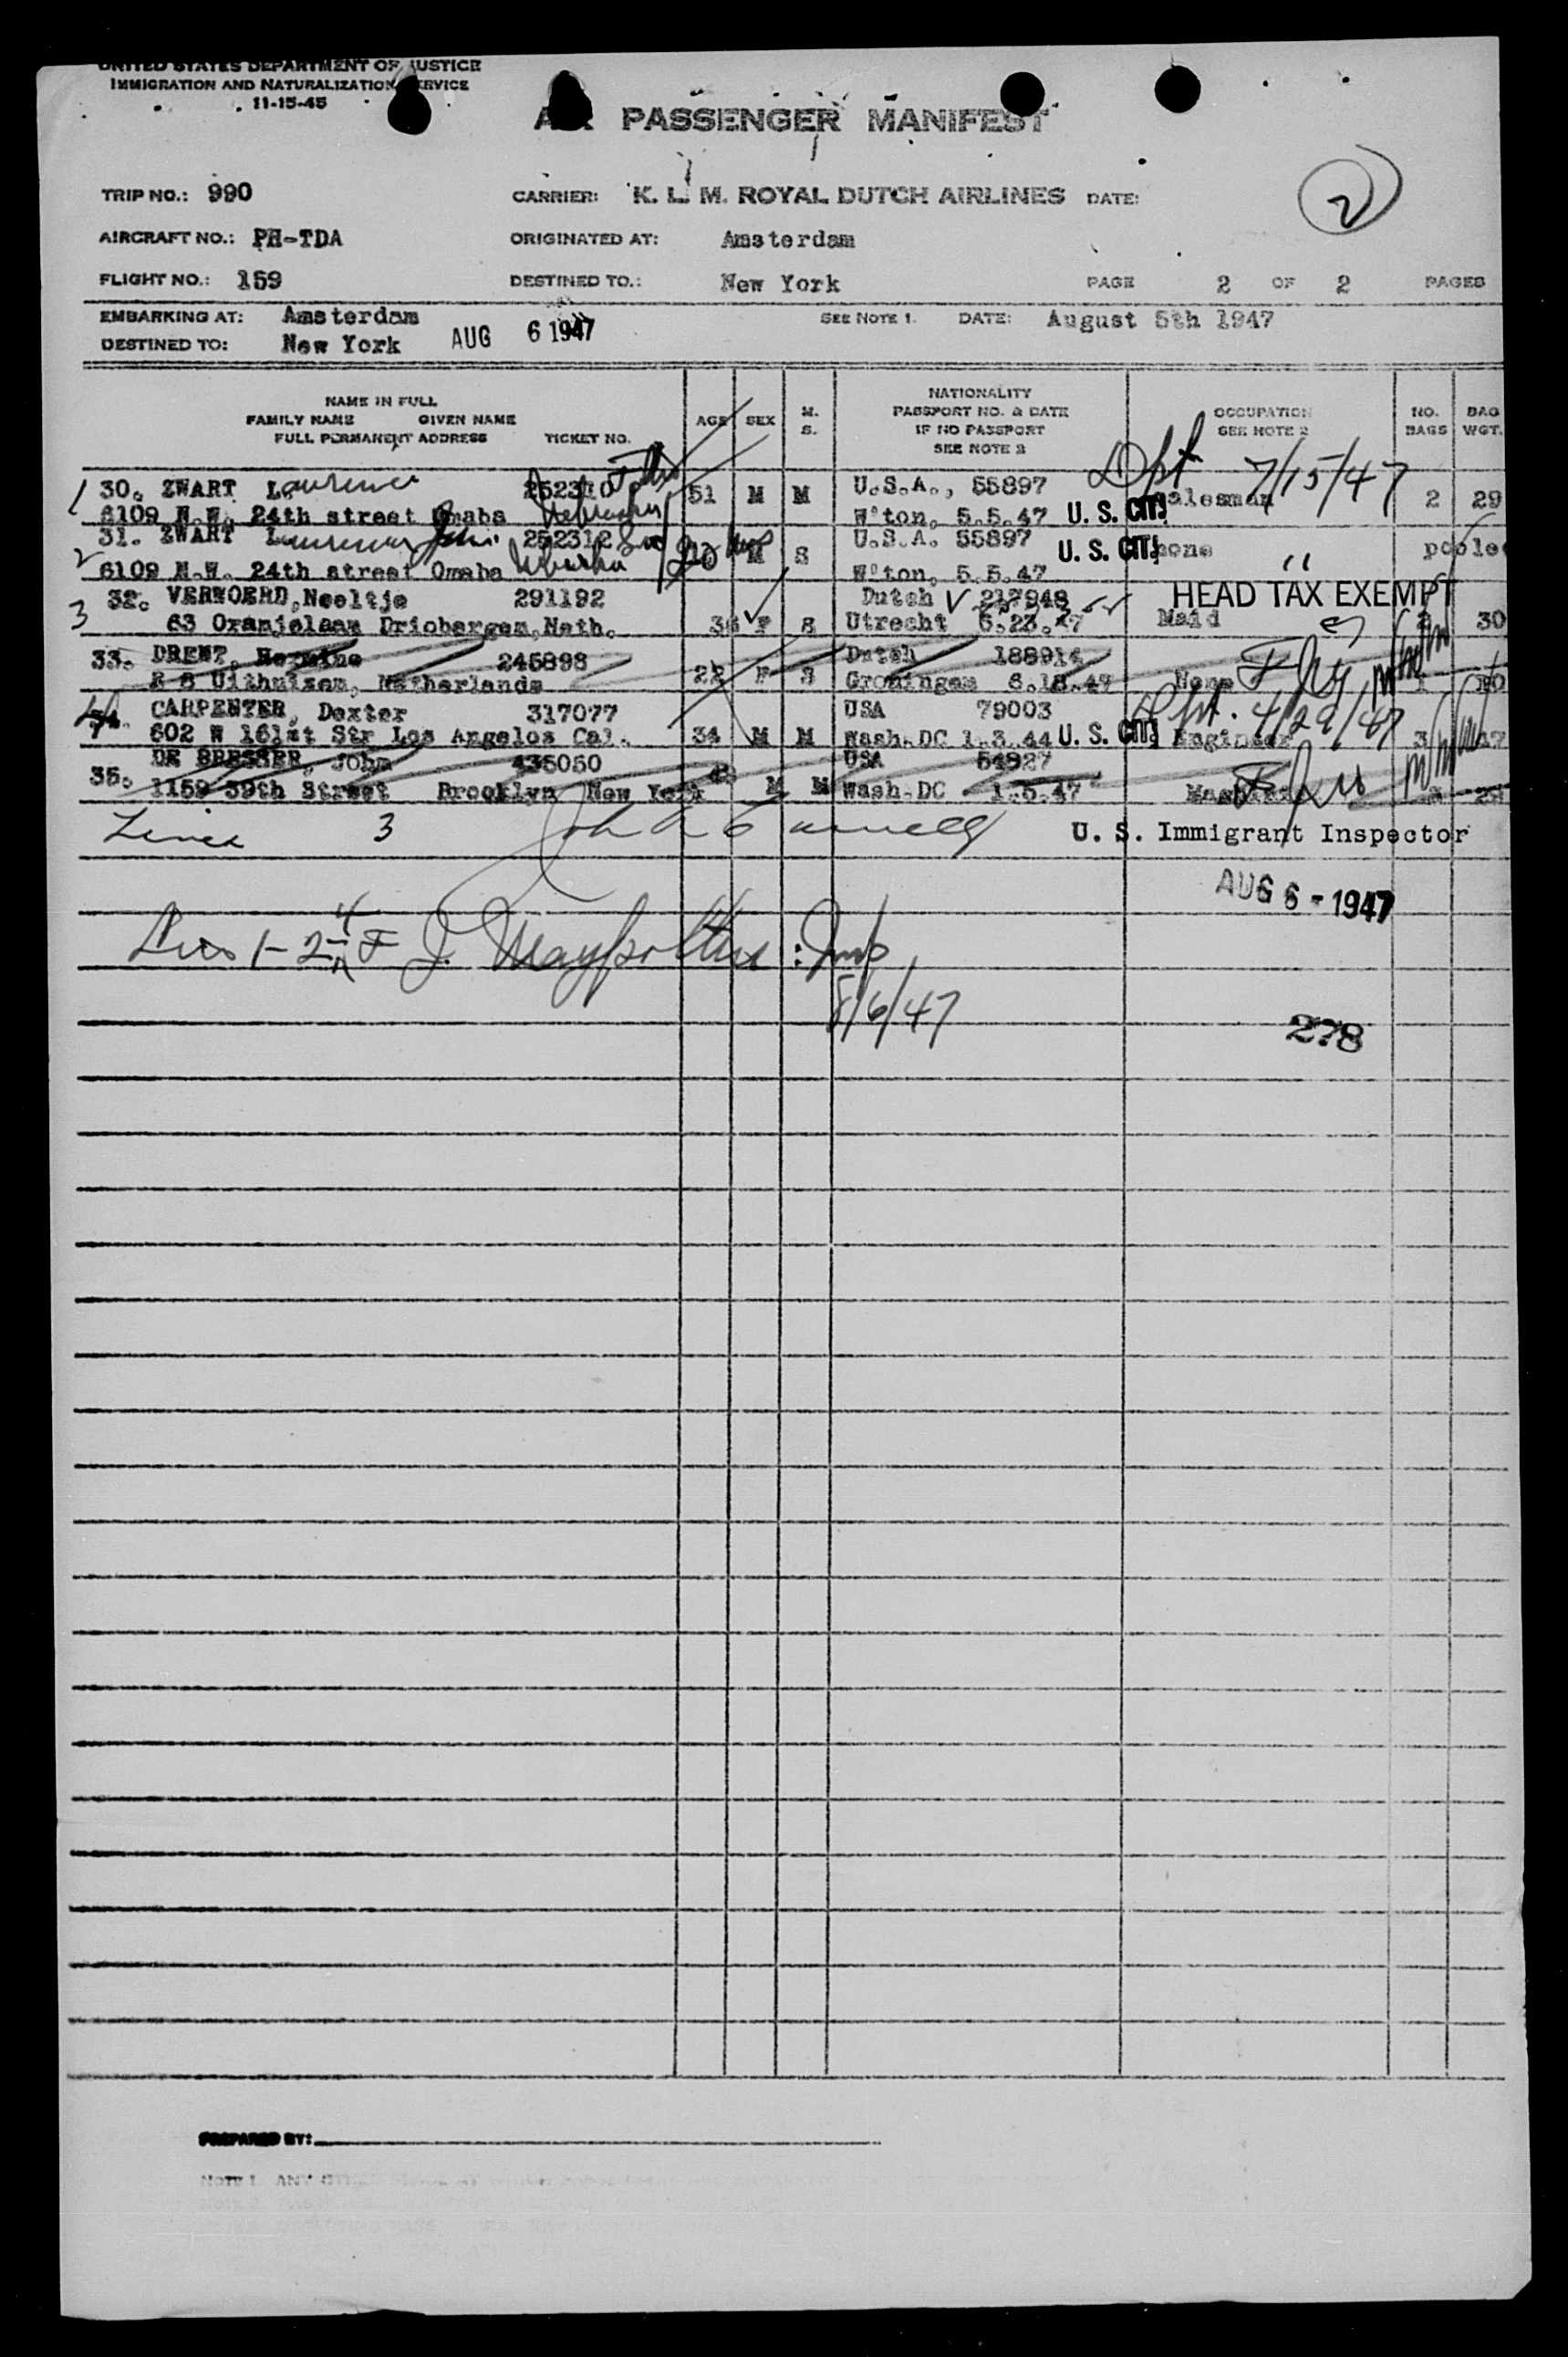 UNITED STATES DEPARTMENT OF JUSTICE
IMMIGRATION AND NATURALIZATION SERVICE
11-15-45
PASSENGER MANIFEST
TRIP NO.: 990 CARRIER: K. L. M. ROYAL DUTCH AIRLINES DATE: 2
AIRCRAFT NO.: PH-TDA ORIGINATED AT: Amsterdam
FLIGHT NO.: 159 DESTINED TO.: New York PAGE 2 OF 2 PAGES
EMBARKING AT: Amsterdam SEE NOTE 1. DATE: August 5th 1947
DESTINED TO: New York AUG 6 1947
NAME IN FULL
FAMILY NAME GIVEN NAME
FULL PERMANENT ADDRESS TICKET NO.
AGE SEX M. S.
NATIONALITY
PASSPORT NO. & DATE
IF NO PASSPORT
SEE NOTE 3
OCCUPATION
SEE NOTE 2
NO. BAGS
BAG WGT.
Dpt 7/15/47
1 30. ZWART Laurence 252310 51 M M U.S.A., 55897 Salesman 2 29
6109 N.W. 24th street Omaha Nebraska W'ton, 5.5.47 U. S. CIT.
2 31. ZWART Laurence John 252312 M S U.S.A. 55897 U. S. CIT. none "
6109 N.W. 24th street Omaha Nebraska W'ton, 5.5.47
3 32. VERWOERD, Neeltje 291192 F S Dutch 217948 HEAD TAX EXEMPT
63 Oranjelaan Driebergen, Neth. Utrecht 6.23.47 Maid 30
33. DRENT, Hermine 245898 22 F S Dutch 188914
Uithuizen, Netherlands Groningen 6.18.47 None 1
34. CARPENTER, Dexter 317077 USA 79003 Dpt. 4/29/47
602 W 161st Str Los Angelos Cal. 34 M M Wash.DC 1.3.44 U. S. CIT. Engineer 3 47
35. DE BRESSER, John 435050 USA 54927
1159 39th Street Brooklyn New York M M Wash.DC 1.5.47
Lines 3 U. S. Immigrant Inspector
AUG 6 - 1947
Lines 1-2-4 F. J. Insp
8/6/47
278
PREPARED BY:
NOTE 1. ANY